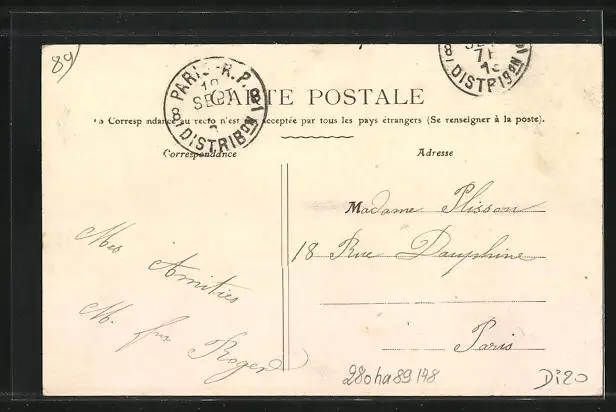 89
PARIS R.P. 8 DISTRIBON
8 DISTRIBON
CARTE POSTALE
La Correspondance au recto n'est pas acceptée par tous les pays étrangers (Se renseigner à la poste).
Correspondance
Mes
Amitiés
M.
Roger
Adresse
Madame Plisson
18 Rue Dauphine
Paris
Di20